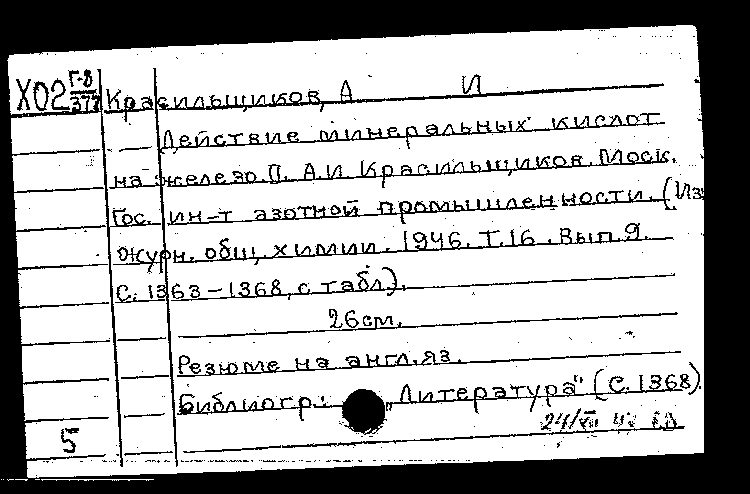 Х02 Г-8/377 Красильщиков, А И
Действие минеральных кислот
на железо. П. А.И Красильщиков. Моск.
Гос. ин-т азотной промышленности. (Из
журн. общ. химии. 1946. Т.16. Вып.9.
С. 1363-1368, с табл).
26см.
Резюме на англ. яз.
Библиогр.: "Литература" (С. 1368).
5